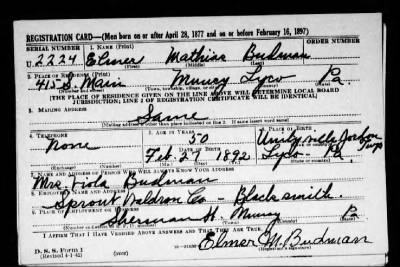 REGISTRATION CARD—(Men born on or after April 28, 1877 and on or before February 16, 1897)
SERIAL NUMBER 1. NAME (Print) ORDER NUMBER
U 2224 Elmer Mathias Budman
(First) (Middle) (Last)
2. PLACE OF RESIDENCE (Print)
415 S. Main Muncy Lyco Pa.
(Number and street) (Town, township, village, or city) (County) (State)
[THE PLACE OF RESIDENCE GIVEN ON THE LINE ABOVE WILL DETERMINE LOCAL BOARD
JURISDICTION; LINE 2 OF REGISTRATION CERTIFICATE WILL BE IDENTICAL]
3. MAILING ADDRESS
Same
[Mailing address if other than place indicated on line 2. If same insert word same]
4. TELEPHONE 5. AGE IN YEARS 6. PLACE OF BIRTH
50
None DATE OF BIRTH Unityville Jordon Twp
Feb. 27 1892 Lyco Pa.
(Exchange) (Number) (Mo.) (Day) (Yr.) (State or country)
7. NAME AND ADDRESS OF PERSON WHO WILL ALWAYS KNOW YOUR ADDRESS
Mrs. Viola Budman
8. EMPLOYER'S NAME AND ADDRESS
Sprout Waldron Co — Blacksmith.
9. PLACE OF EMPLOYMENT OR BUSINESS
Sherman St. Muncy Pa
(Number and street or R. F. D. number) (Town) (County) (State)
I AFFIRM THAT I HAVE VERIFIED ABOVE ANSWERS AND THAT THEY ARE TRUE.
D. S. S. Form 1
(Revised 4-1-42) Elmer M. Budman